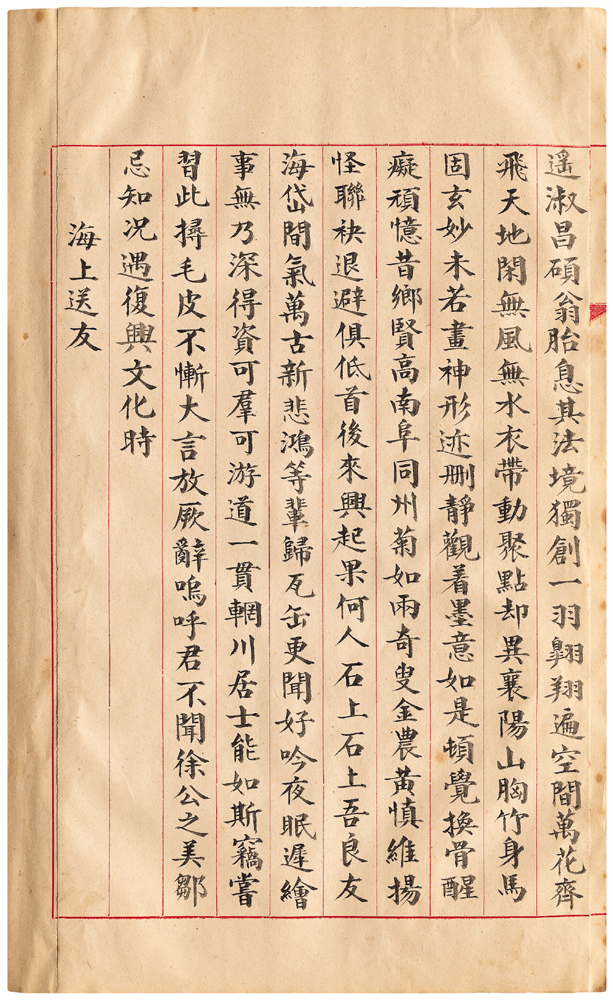 遥淑昌碩翁胎息其法境獨創一羽翺翔遍空間萬花齊
飛天地閑無風無水衣帶動聚點却異襄陽山胸竹身馬
固玄妙未若畫神形迹删靜觀着墨意如是頓覺換骨醒
癡頑憶昔鄉賢高南阜同州菊如兩奇叟金農黃慎維揚
怪聯袂退避俱低首後來興起果何人石上石上吾良友
海岱間氣萬古新悲鴻等輩歸瓦缶更聞好吟夜眠遲繪
事無乃深得資可羣可游道一貫輞川居士能如斯竊嘗
習此撏毛皮不慚大言放厥辭嗚呼君不聞徐公之美鄒
忌知况遇復興文化時
海上送友